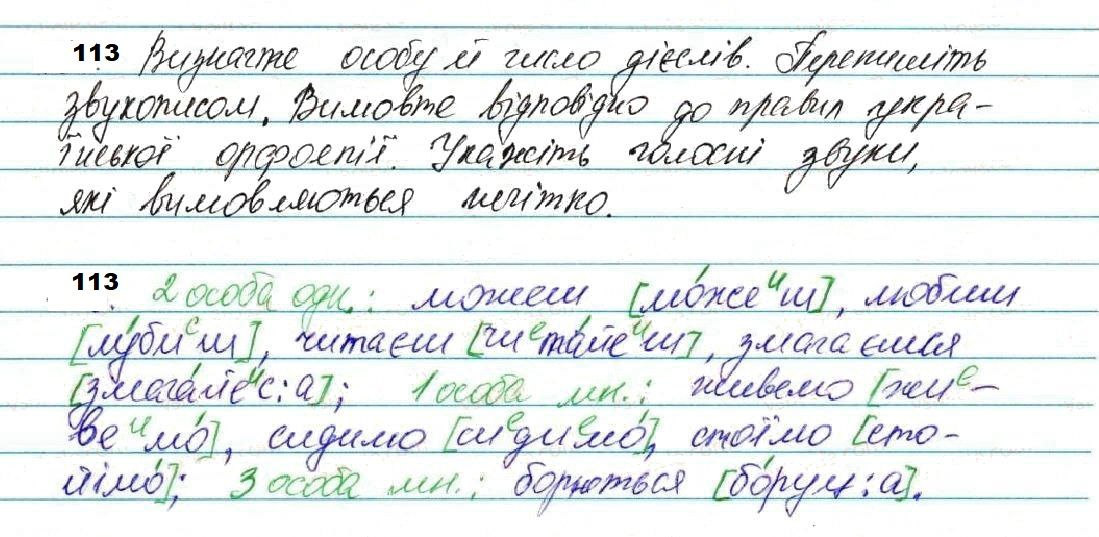 113 Визначте особу й число дієслів. Перепишіть
звукописом. Вимовте відповідно до правил укра-
їнської орфоепії. Укажіть голосні звуки,
які вимовляються нечітко.
113 2 особа одн.: можеш [мо́жеиш], любиш
[лу́биеш], читаєш [чиета́йеиш], змагаєшся
[змага́йеис:а]; 1 особа мн.: живемо [жие-
веимо́], сидимо [сиедиемо́], стоїмо [сто-
йімо́]; 3 особа мн.: борються [бо́руц:а].